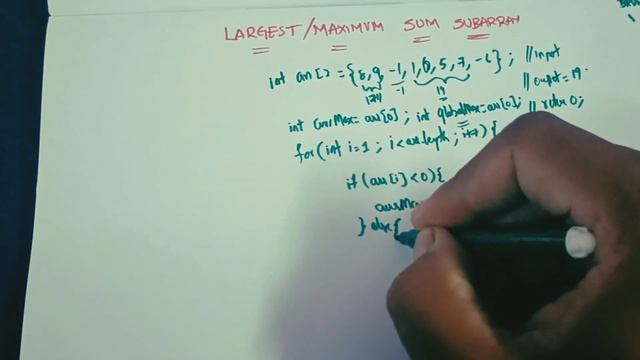 LARGEST/MAXIMUM SUM SUBARRAY
int arr[] = {8, 9, -1, 1, 6, 5, 7, -6}; //input
-1 19 //output = 19.
int currMax = arr[0]; int globalMax = arr[0]; // return 0;
for(int i=1; i<arr.length; i++) {
if (arr[i] <0){
currMax
} else {